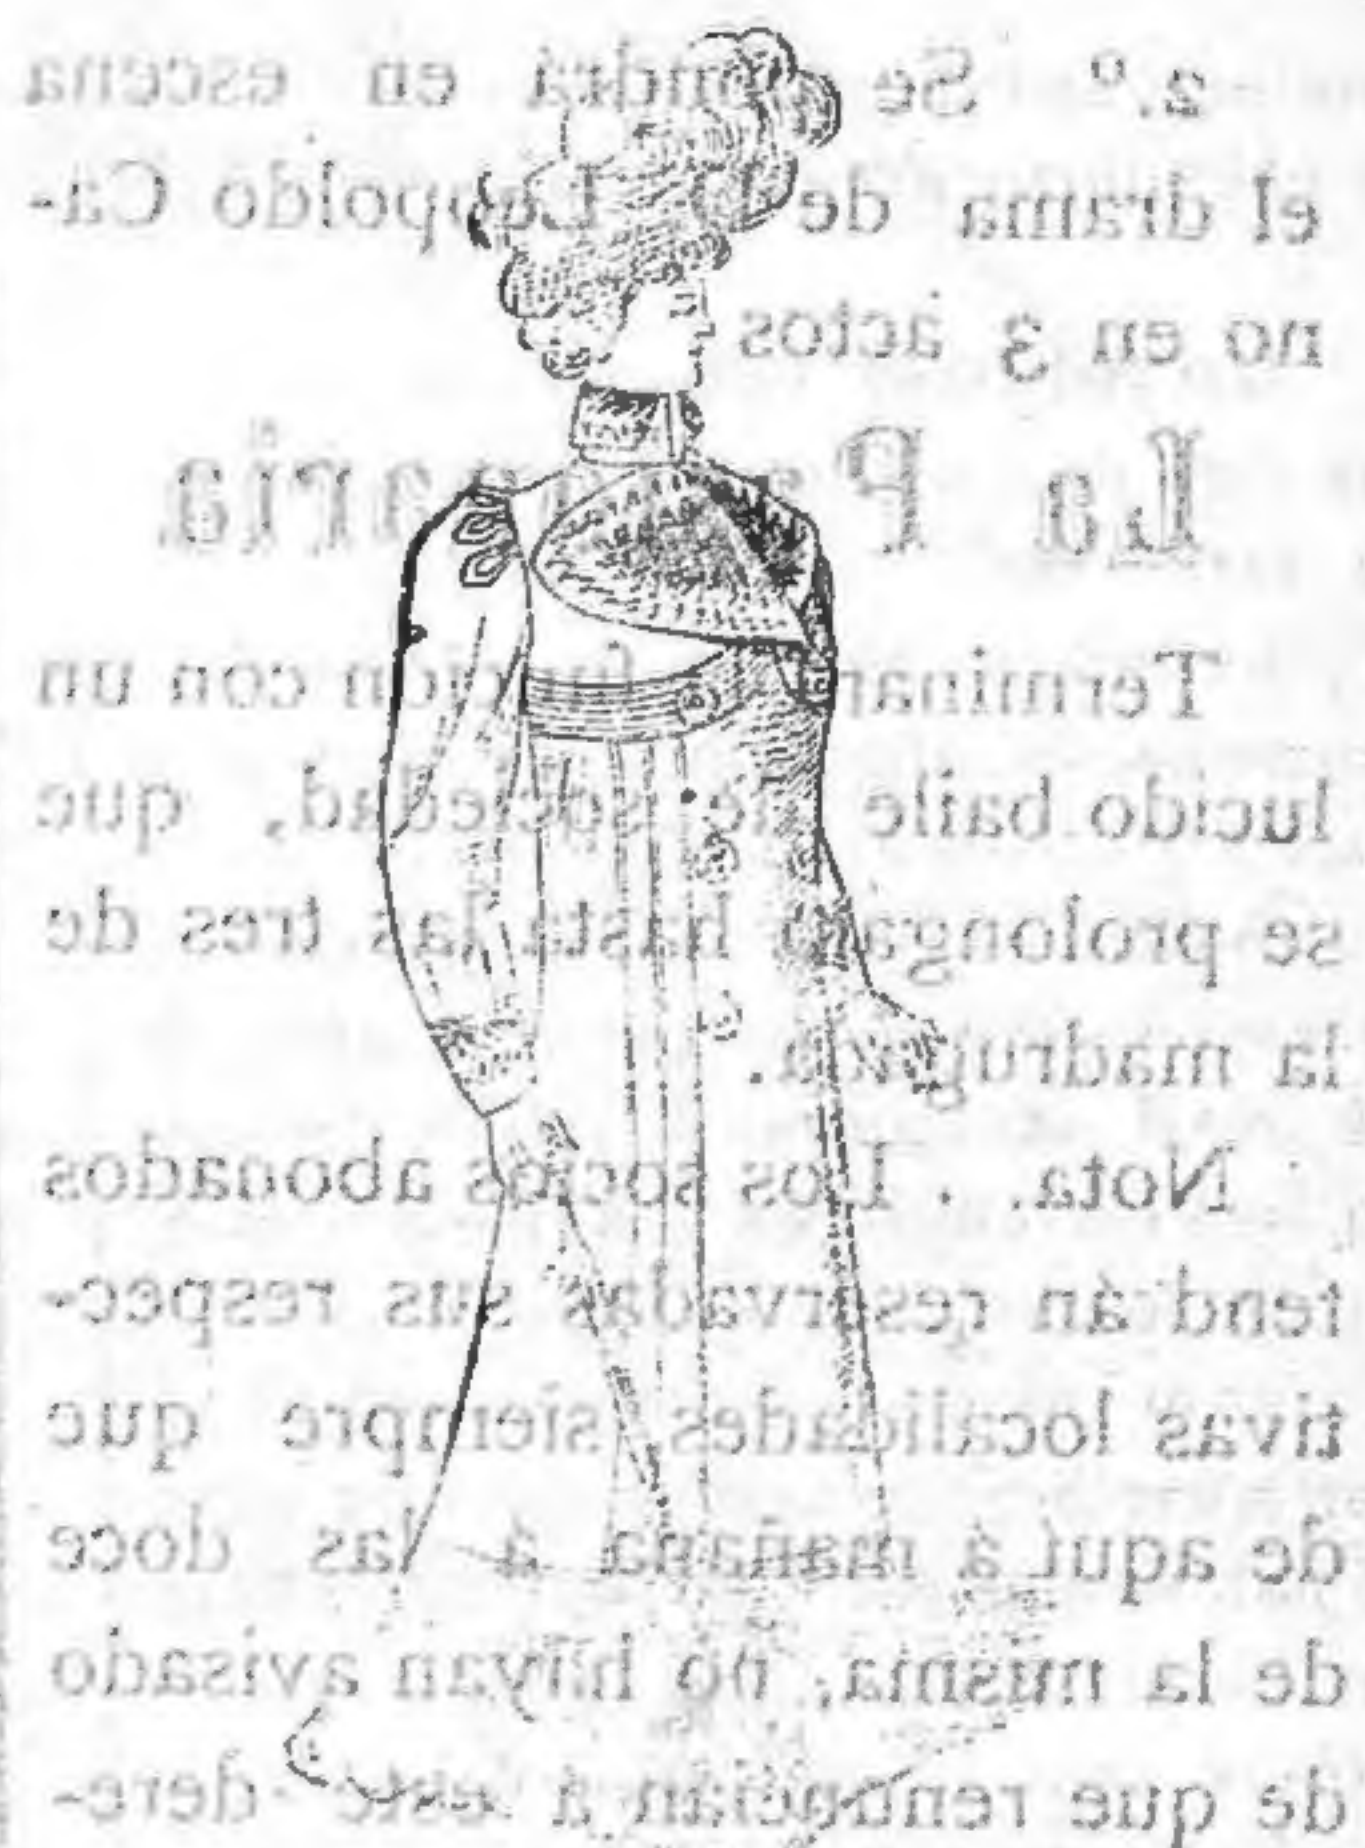 2.º Se pondrá en escena
el drama de Leopoldo Ca-
no en 3 actos
La Pasionaria
Terminará la función con un
lucido baile de sociedad, que
se prolongará hasta las tres de
la madrugada.
Nota. Los socios abonados
tendrán reservadas sus respec-
tivas localidades siempre que
de aquí á mañana á las doce
de la misma, no hayan avisado
de que renuncian á este dere-